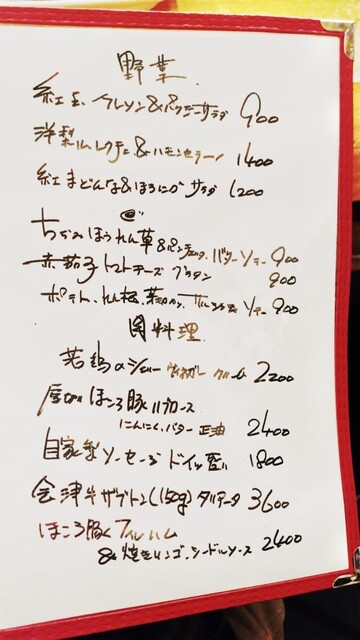 野菜
紅玉、クレソン&パクチーサラダ 900
洋梨ル.レクチェ.&ハモンセラーノ 1400
紅まどんな&ほろにがサラダ 1200
ちぢみほうれん草&パンチェッタ.バターソテー 900
赤茄子トマトチーズグラタン 900
ポテト、れん根、ソテー 900
肉料理.
若鶏のシェリーヴィネガークリーム 2200
厚切ほころ豚リブロース
にんにく、バター正油 2400
自家製ソーセージドイツ産 1800
会津牛ザブトン(150g)タリアータ 3600
ほころ豚フィレハム
&焼きリンゴ、シードルソース 2400